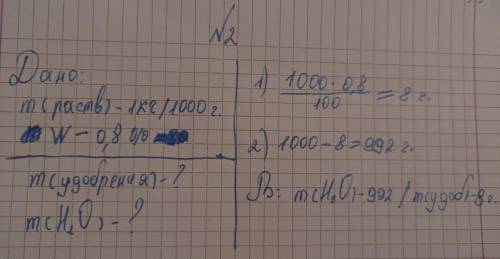 №2
Дано:
m(раств) - 1кг/1000г.
W - 0,8 0/0
m(удобрения) - ?
m(H₂O) - ?
1) 1000 · 0,8 / 100 = 8 г.
2) 1000 - 8 = 992 г.
В: m(H₂O) - 992 / m(удоб) - 8 г.